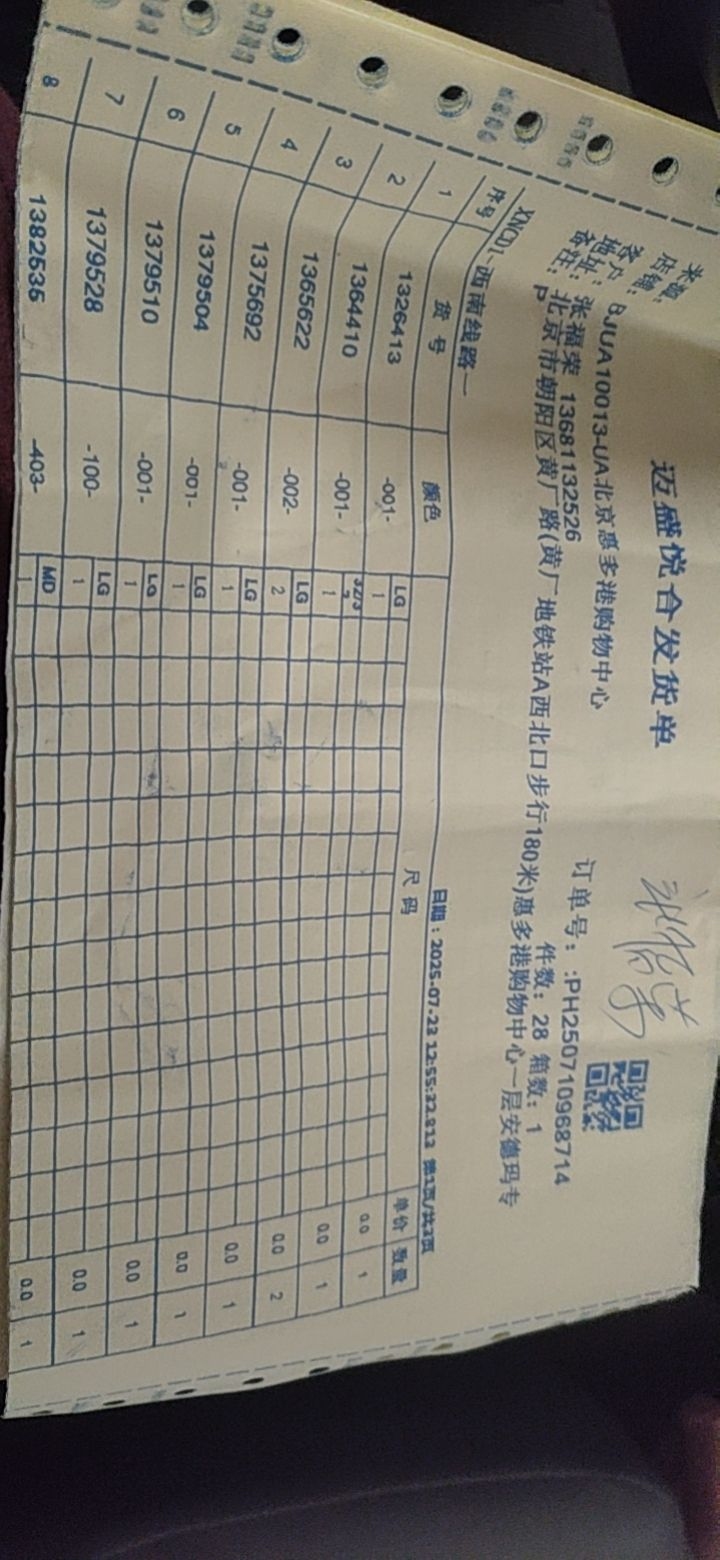 迈盛悦合发货单
BJUA10013-UA北京惠多港购物中心
订单号：:PH250710968714
张福荣 13681132526
件数：28 箱数：1
北京市朝阳区黄厂路(黄厂地铁站A西北口步行180米)惠多港购物中心一层安德玛专
XNC01-西南线路一
日期：2025-07-23 12:55:22.813 第1页/共3页
序号 货号 颜色 尺码 单价 数量
LG
1 1326413 -001- 1 0.0 1
2 1364410 -001- 1 0.0 1
LG
3 1365622 -002- 2 0.0 2
LG
4 1375692 -001- 1 0.0 1
LG
5 1379504 -001- 1 0.0 1
LG
6 1379510 -001- 1 0.0 1
LG
7 1379528 -100- 1 0.0 1
MD
8 1382535 -403- 1 0.0 1